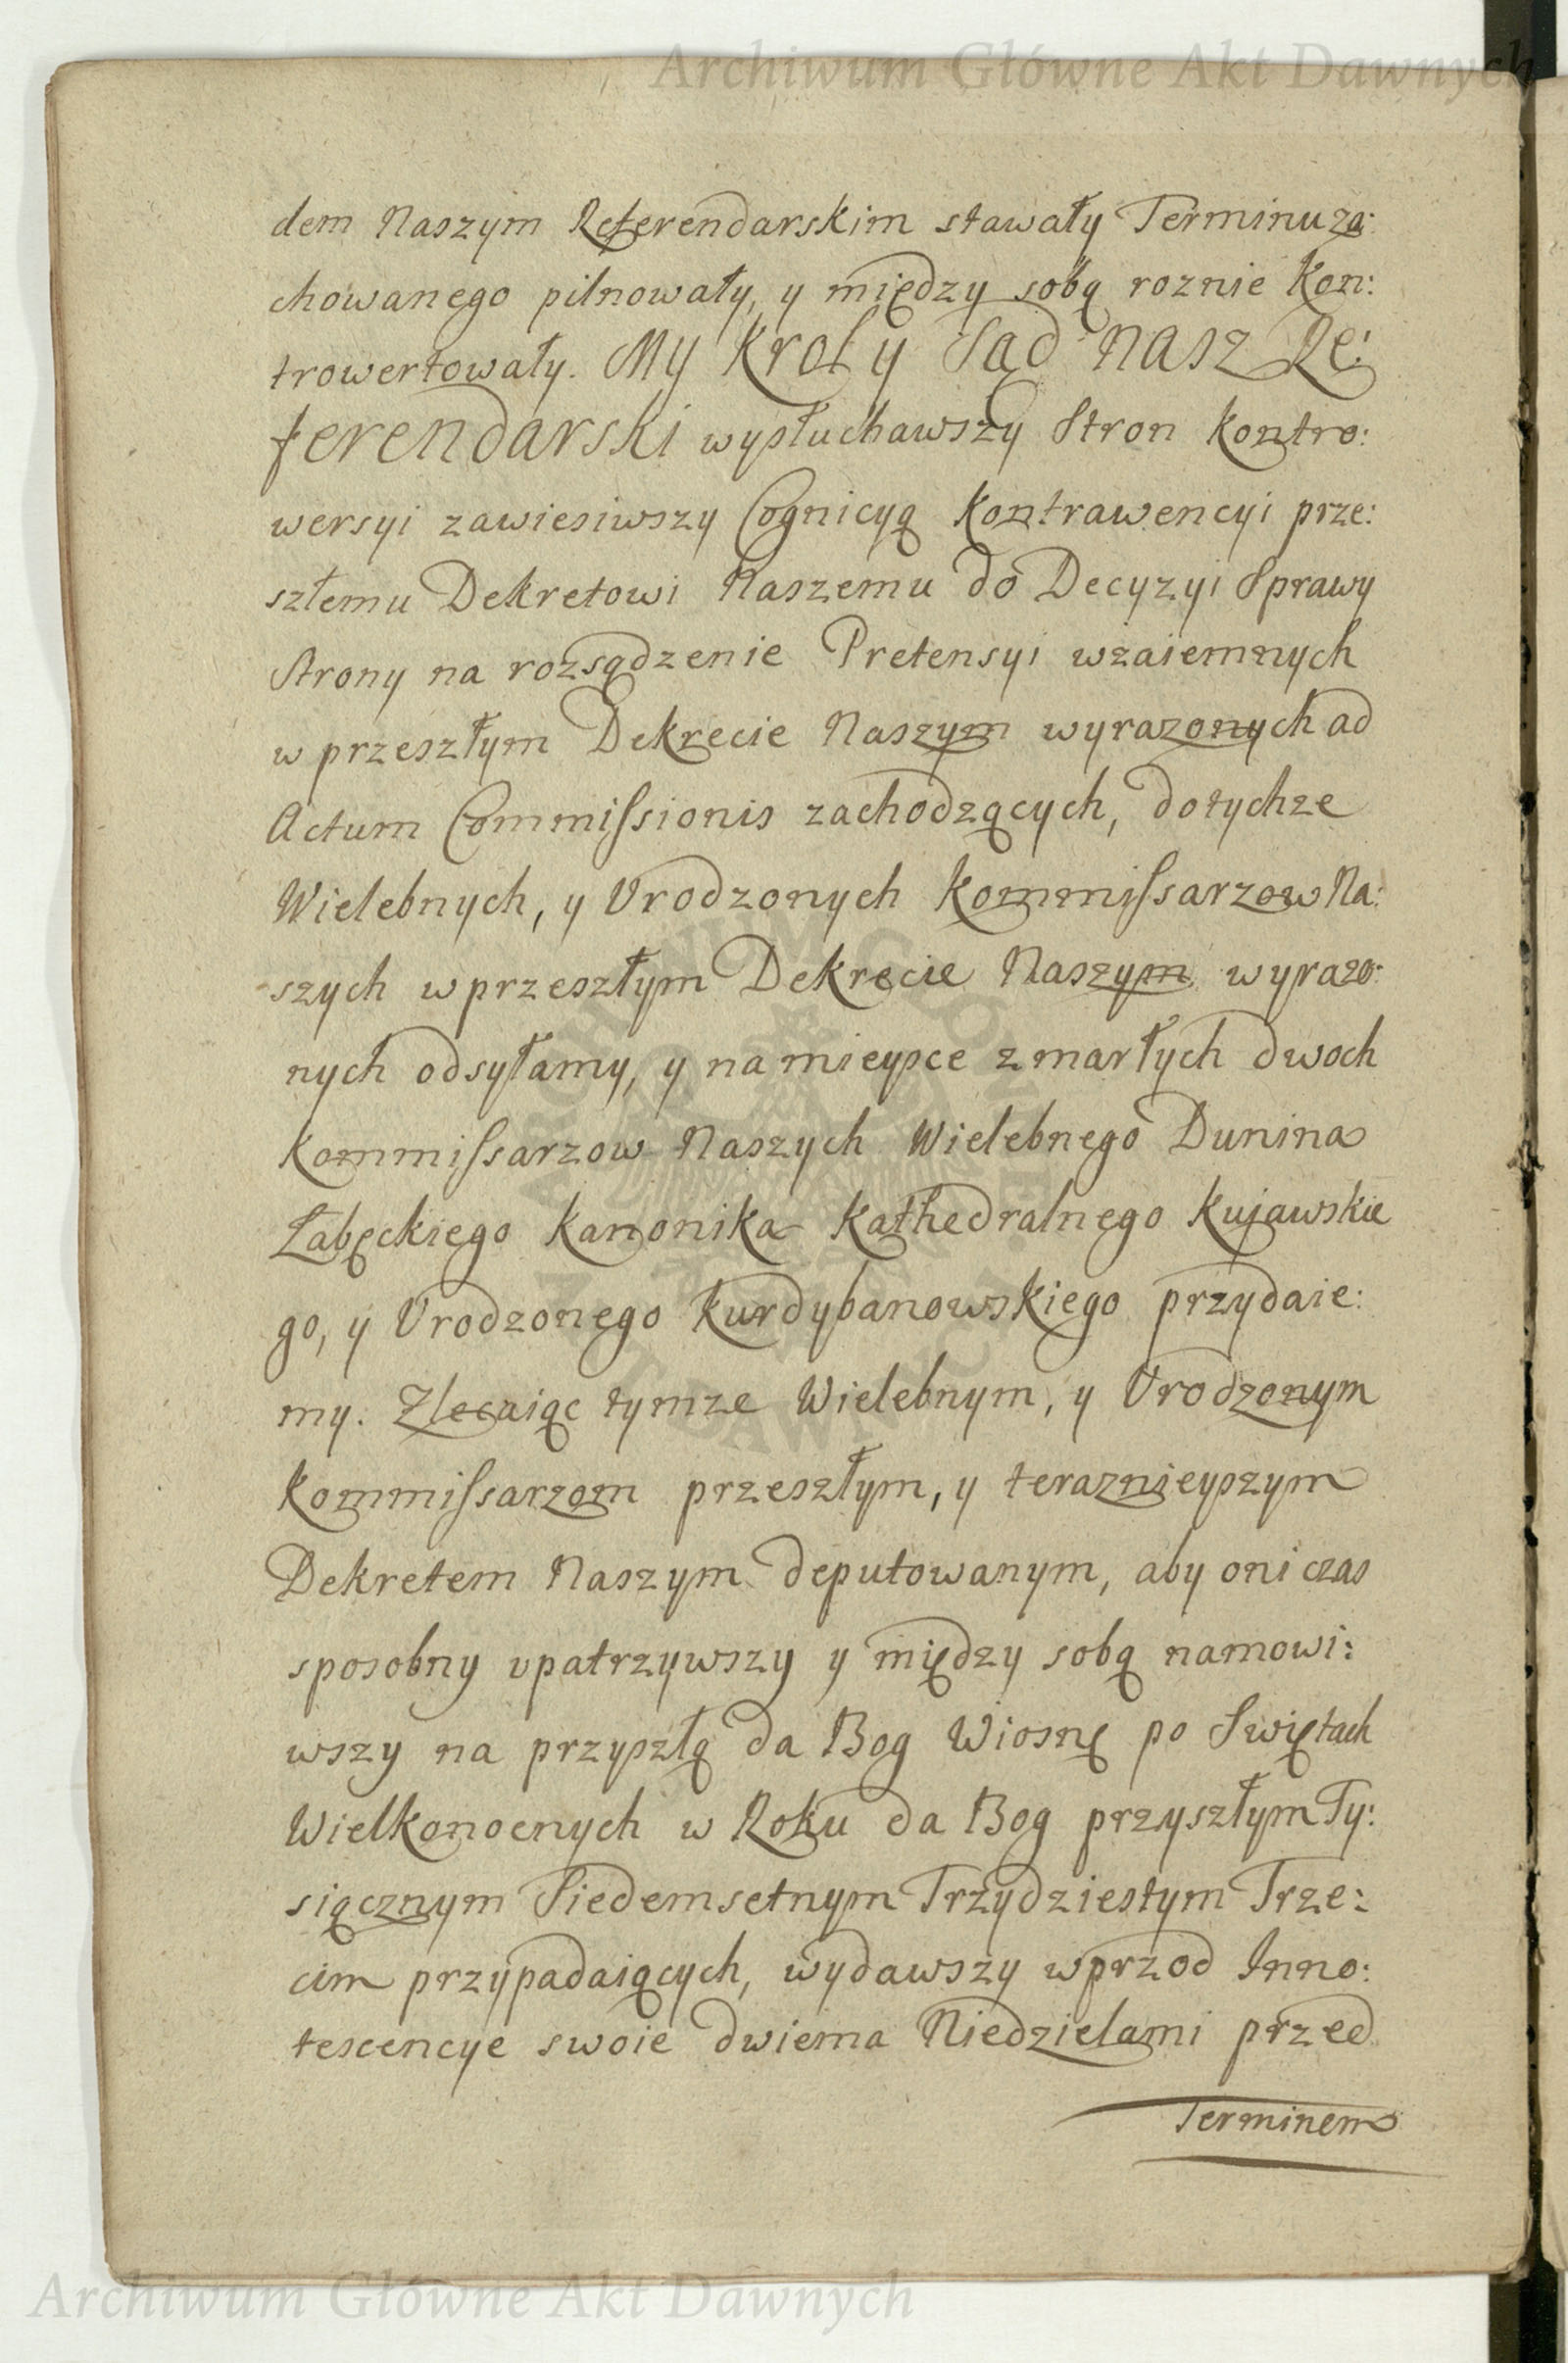 Archiwum Główne Akt Dawnych
dem Naszym Referendarskim stawały Terminu za:
chowanego pilnowały, y między sobą roznie Kon:
trowertowały. My Krol y Sąd nasz Re:
ferendarski wysłuchawszy Stron Kontro:
wersyi zawiesiwszy Cognicyą Kontrawencyi prze:
szłemu Dekretowi Naszemu do Decyzyi Sprawy
Strony na rozsądzenie Pretensyi wzaiemnych
w przeszłym Dekrecie Naszym wyrazonych ad
Actum Commissionis zachodzących, dotychze
Wielebnych, y Vrodzonych Kommissarzow Na:
szych w przeszłym Dekrecie Naszym wyrazo:
nych odsyłamy, y na mieysce zmarłych dwoch
Kommissarzow Naszych Wielebnego Dunina
Łabęckiego Kanonika Kathedralnego Kujawskie
go, y Vrodzonego Kurdybanowskiego przydaie:
my. Zlecaiąc tymze Wielebnym, y Vrodzonym
Kommissarzom przeszłym, y teraznieyszym
Dekretem Naszym deputowanym, aby oni czas
sposobny upatrzywszy y między sobą namowi:
wszy na przyszłą da Bog Wiosnę po Swiętach
Wielkonocnych w Roku da Bog przyszłym Ty:
siącznym Siedemsetnym Trzydziestym Trze:
cim przypadaiących, wydawszy wprzod Inno:
tescencye swoie dwiema Niedzielami przed
Terminem
Archiwum Główne Akt Dawnych